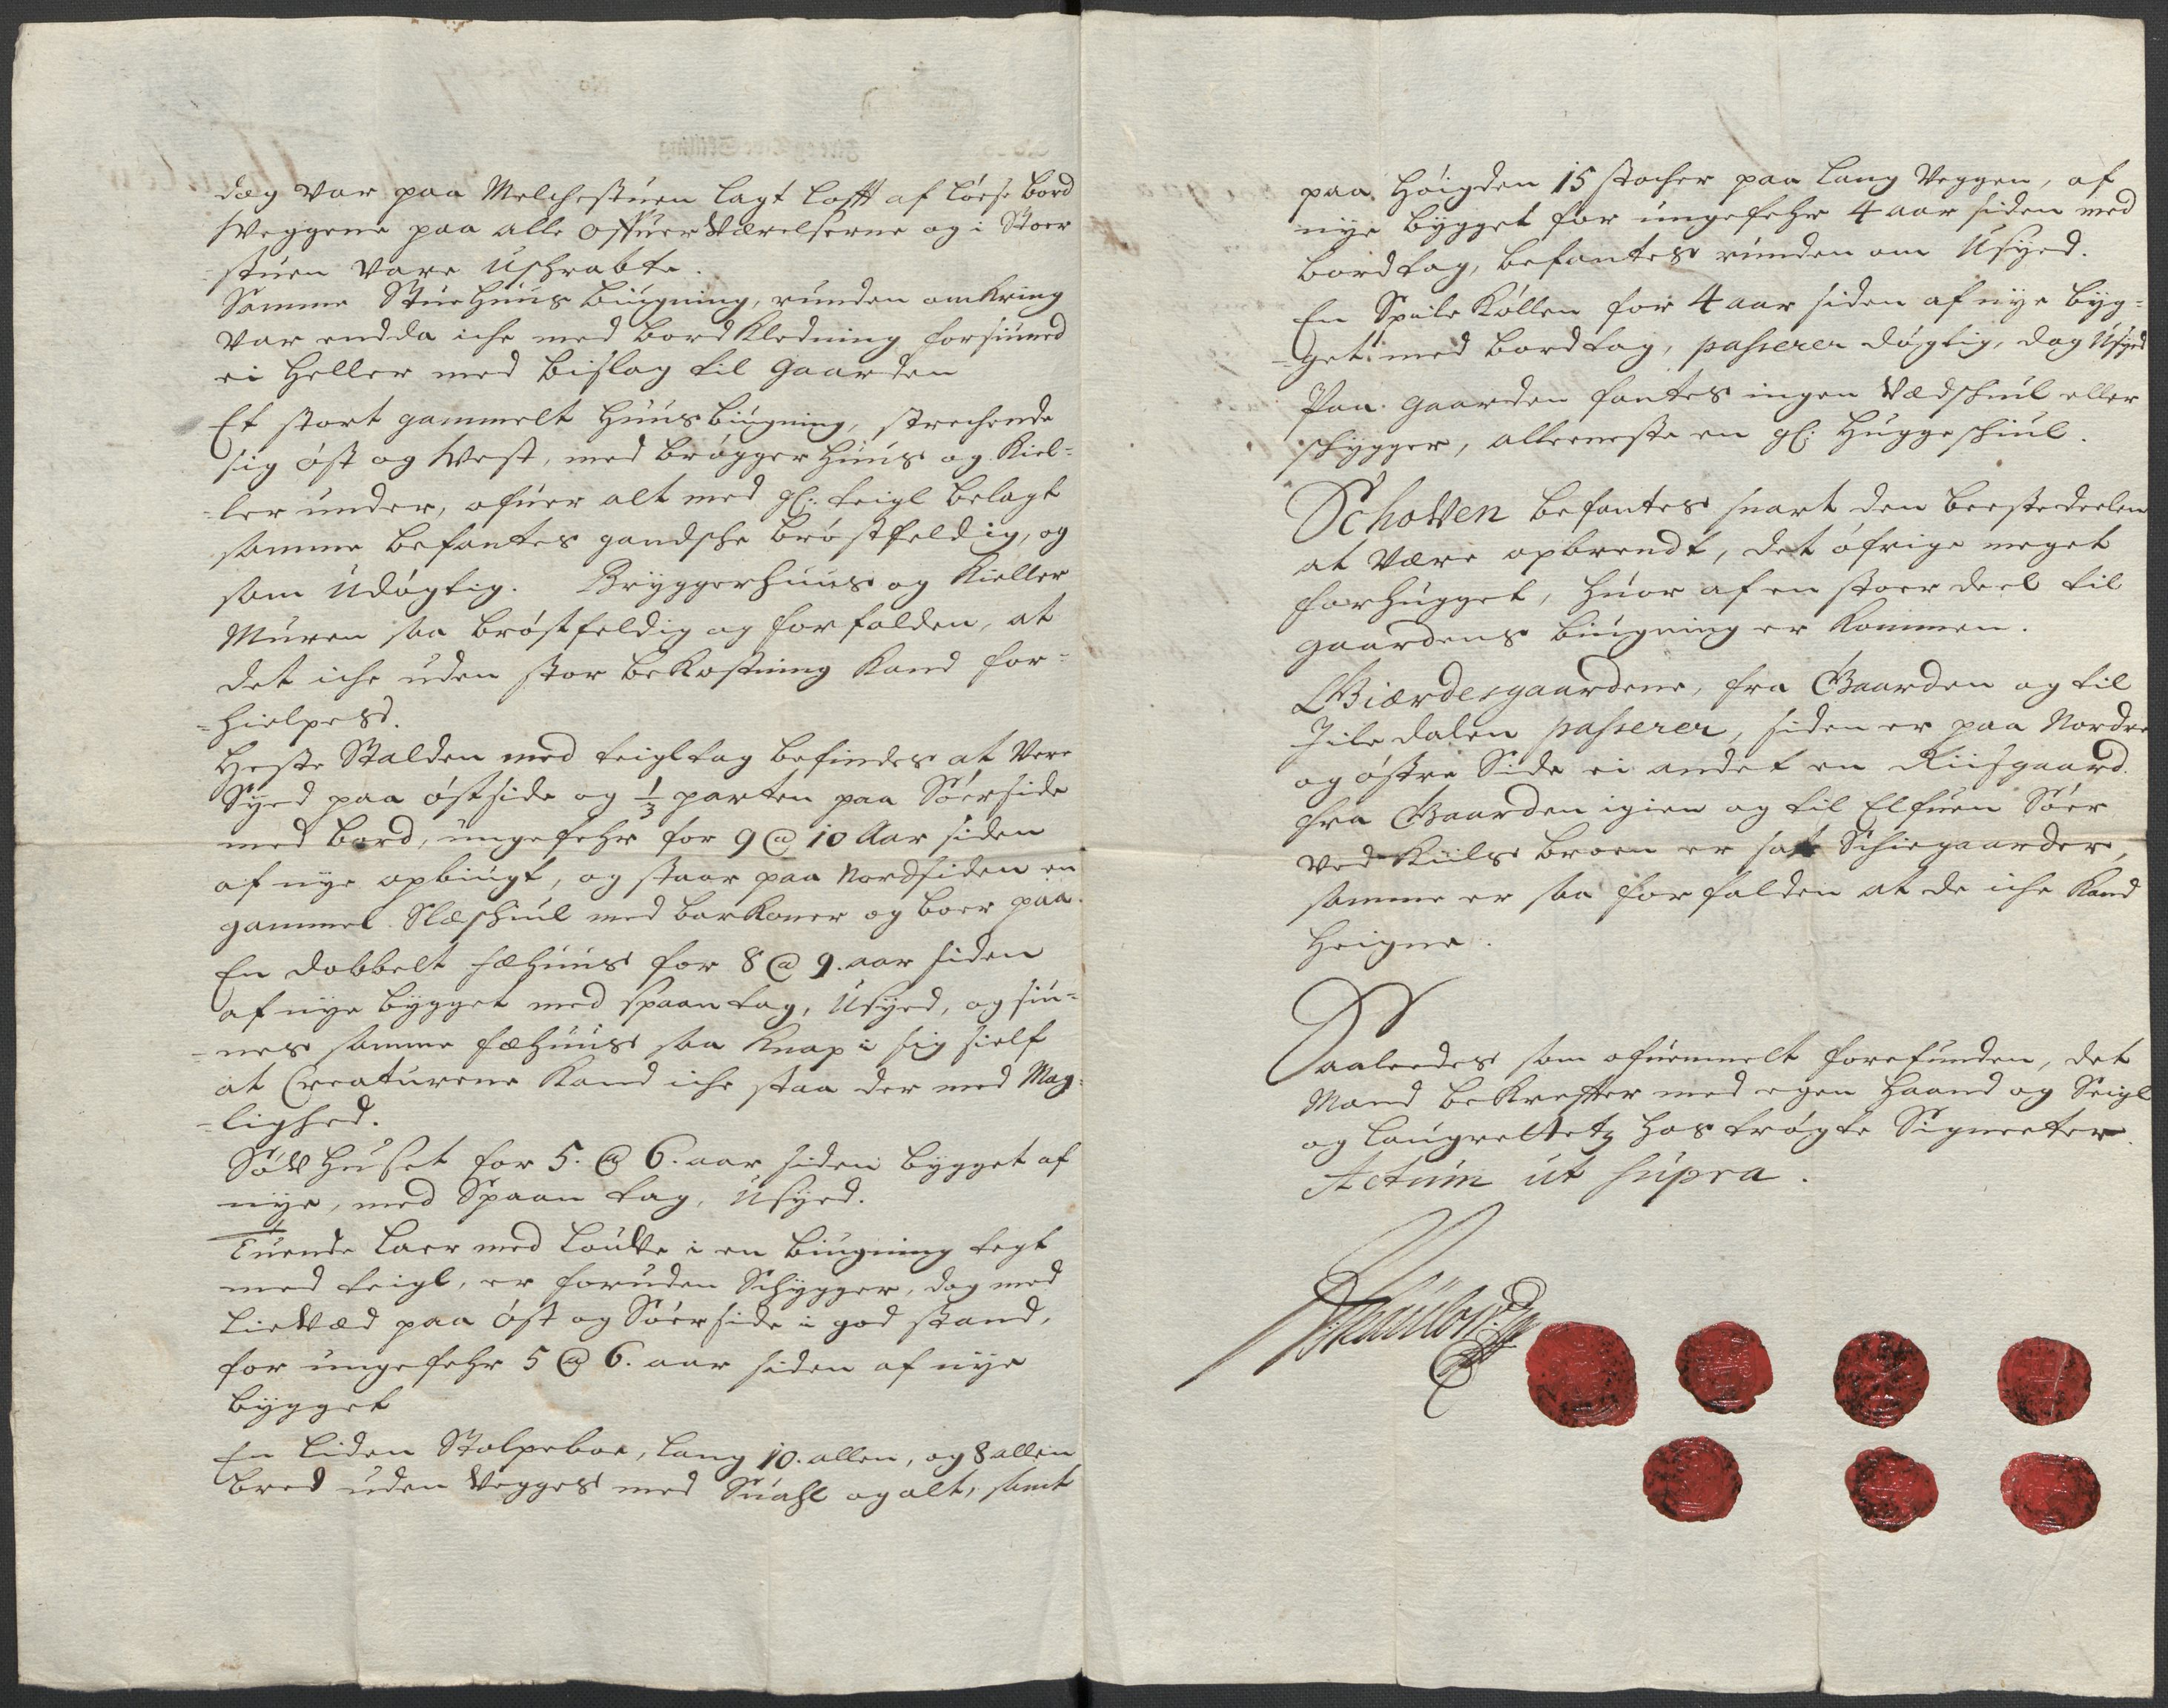 dog var paa Melchestuen lagt lofft af løese bord
Weggene paa alle offuer Værelserne og i Stoer
=stuen vare uschrabte.
Samme Stuehuus biugning, runden omkring
var endda iche med bord Kledning forsiuned
ei heller med bislag til Gaarden
Et stort gammelt huus biugning, strechende
sig øst og West, med brøgger huus og Kiel=
=ler under, ofuer alt med gl: teigl belagt
samme befantes gandsche brøstfeldig, og
som Udøgtig. Bryggerhuus og Kieller
Muren saa brøstfeldig og forfalden, at
det iche uden stor bekostning kand for=
=hielpes.
Heste Stalden med teigltag befindes at vere
Syed paa østside og 1/3 parten paa Søerside
med bord, ungefehr for 9 @ 10 Aar siden
af nye opbiugt, og staar paa Nordsiden en
gammel Slæschiul med barkoner og boer paa.
En dobbelt fæhuus for 8 @ 9. aar siden
af nye bygget med spaantag, Usyed, og siu=
=nes samme fæhuus saa knap i sig sielf
at Creaturene kand iche staa der med Mag=
=lighed.
Søw huset for 5. @ 6. aar siden bygget af
nye, med Spaan tag, Usyed.
Tuende laer med louwe i en biugning tegt
med teigl, er foruden Schygger, dog med
lieved paa øst og Søerside i god stand,
for ungefehr 5 @ 6. aar siden af nye
bygget
En liden Stolpeboe, lang 10. allen, og 8 allen
bred uden Vegges med Suahl og alt, samt
paa høigden 15 stocher paa lang Veggen, af
nye bygget for ungefehr 4 aar siden med
bordtag, befantes runden om Usyed.
En Spile Køllen for 4 aar siden af nye byg=
=get med bordtag, passerer døgtig, dog Usyed
Paa gaarden fantes ingen Vedschiul eller
schygger, alleeneste en gl: huggeschiul.
Schowen befantes snart den beestedeelen
at være opbrendt, det øfrige meget
forhugget, huor af en stoer deel til
gaardens biugning er kommen.
Giærdesgaardene, fra Gaarden og til
Jiledalen passerer, siden er paa Nordre
og østre Side ei andet en Riisgaard.
fra Gaarden igien og til Elfuen Søer
ved Kiils broen er satt Schiegaarder,
samme er saa forfalden at de iche kand
heigne.
Saaledes som ofuenmelt forefunden, det
Mand bekrefter med egen haand og Seigl
og laugrettetz hos trøgte Signeter.
Actum ut supra.